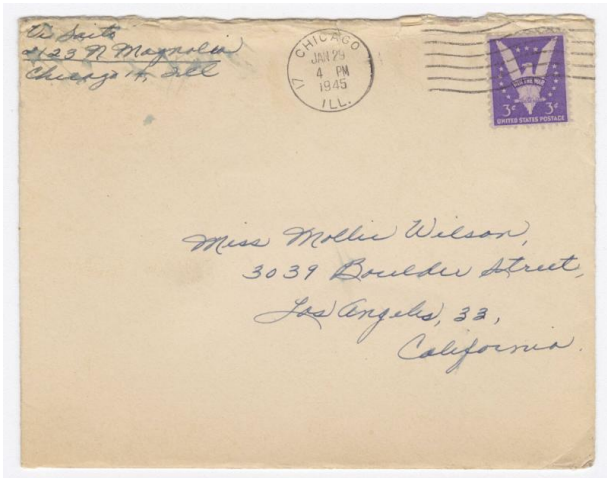 Vi Saito
2123 N Magnolia
Chicago 14, Ill
CHICAGO
JAN 29
4 PM
1945
ILL.
17
WIN THE WAR
3¢ 3¢
UNITED STATES POSTAGE
Miss Mollie Wilson,
3039 Boulder Street,
Los Angeles, 33,
California.